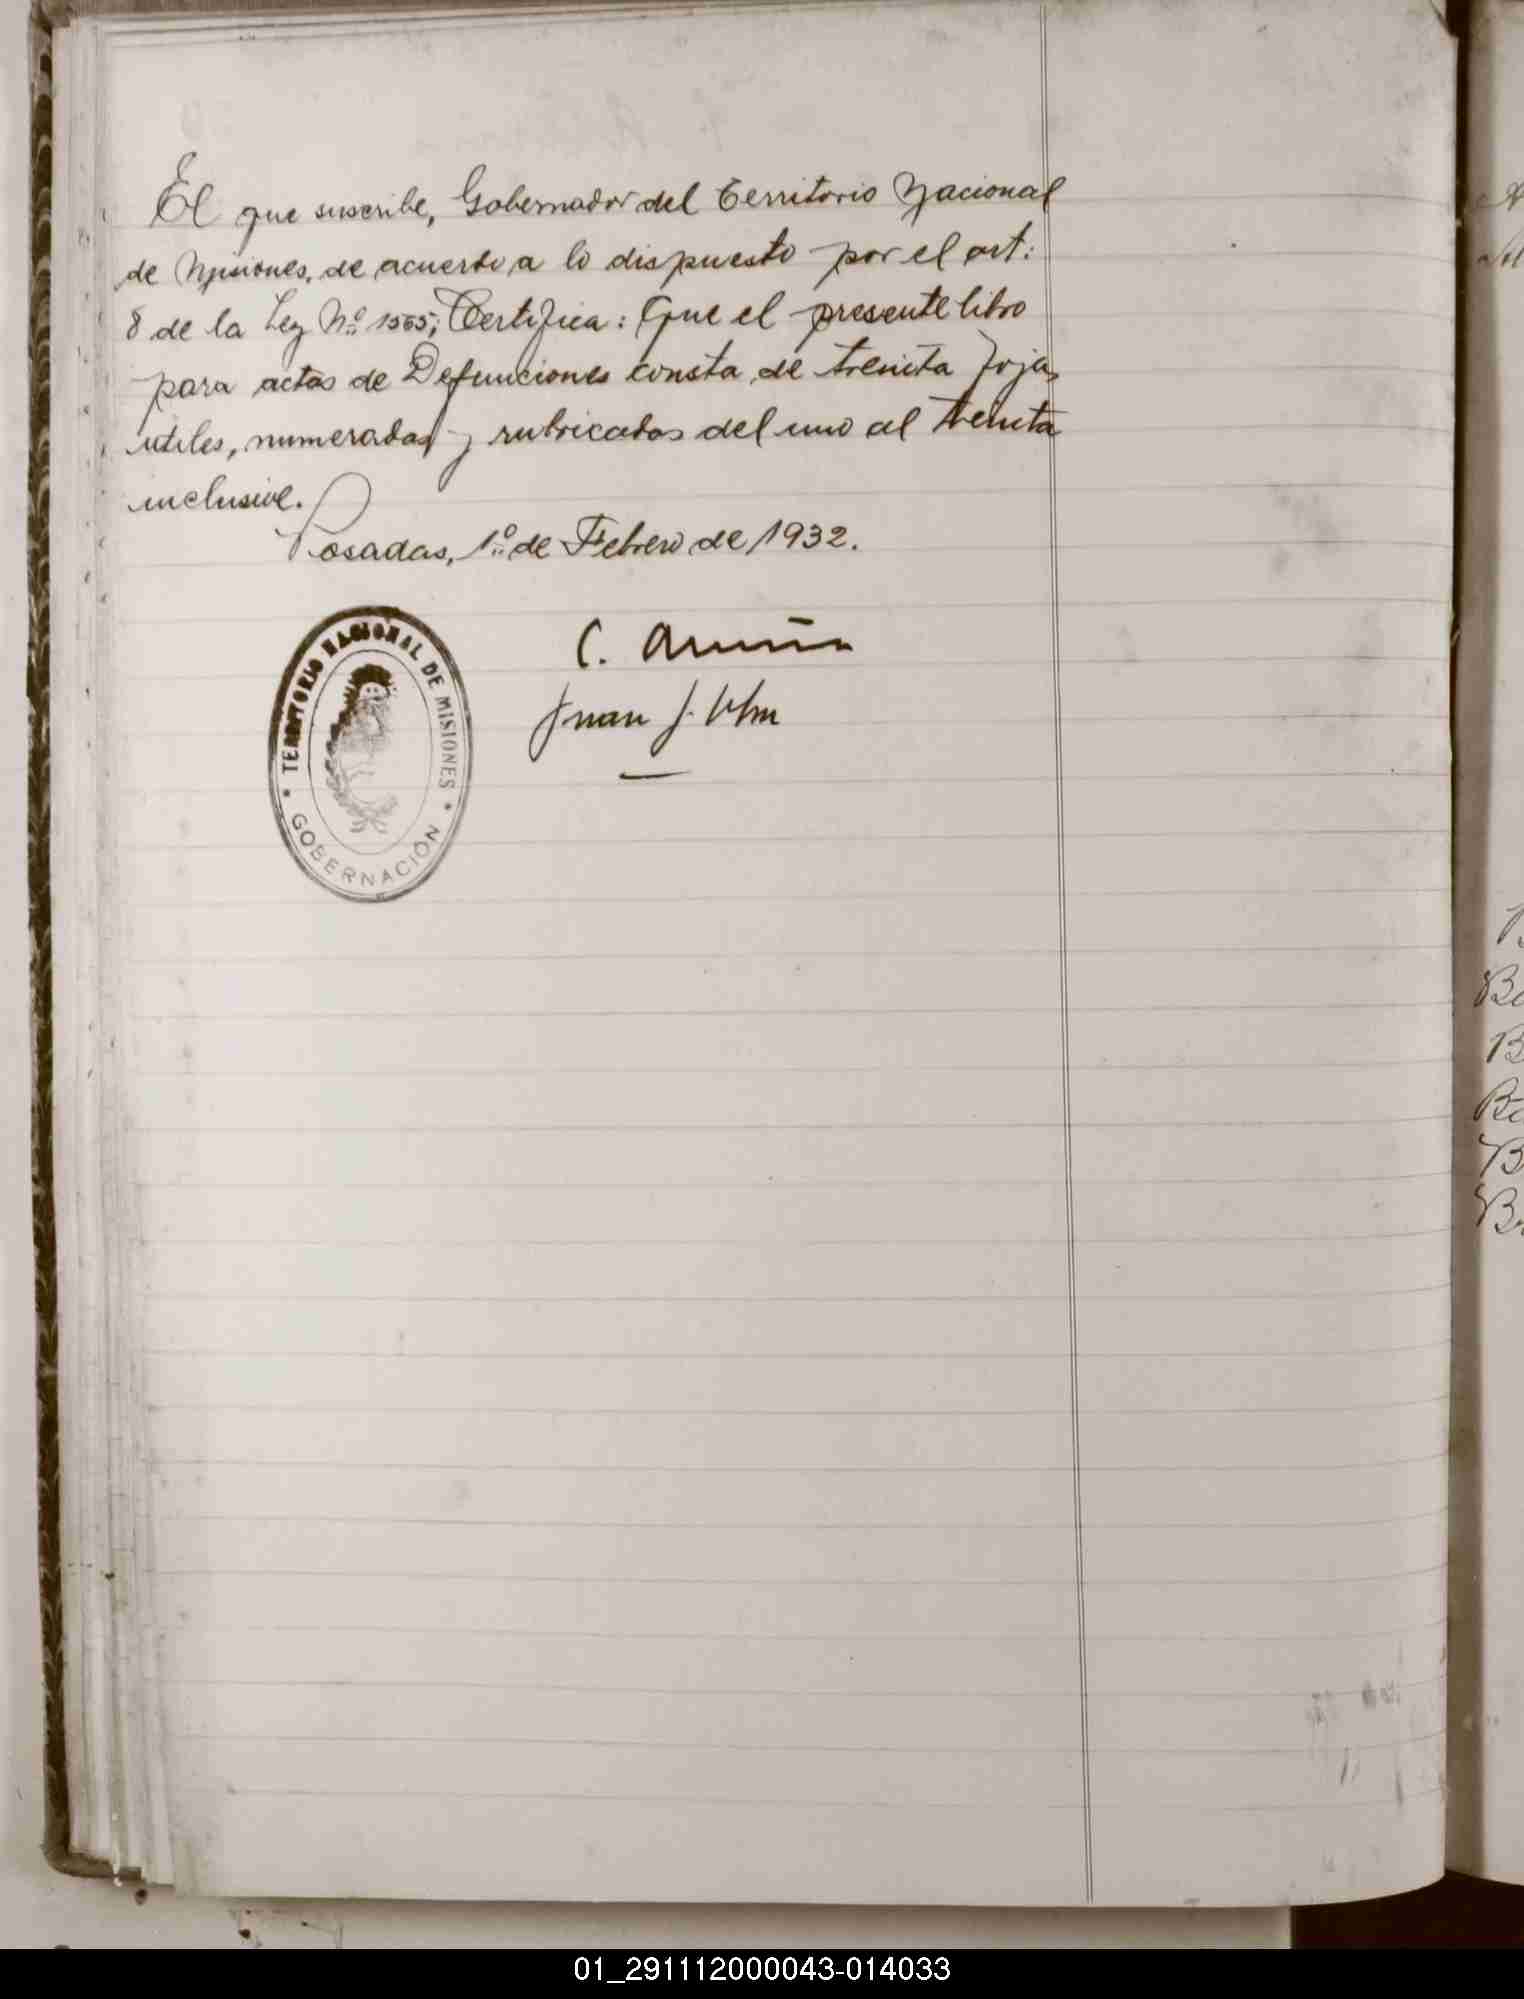 El que suscribe, Gobernador del Territorio Nacional
de Misiones, de acuerdo a lo dispuesto por el art:
8 de la Ley Nº 1565; Certifica: Que el presente libro
para actas de Defunciones consta de treinta fojas
utiles, numeradas y rubricadas del uno al treinta
inclusive.
Posadas, 1º de Febrero de 1932.
C. Acuña
Juan J.
TERRITORIO NACIONAL DE MISIONES
GOBERNACIÓN
01_291112000043-014033